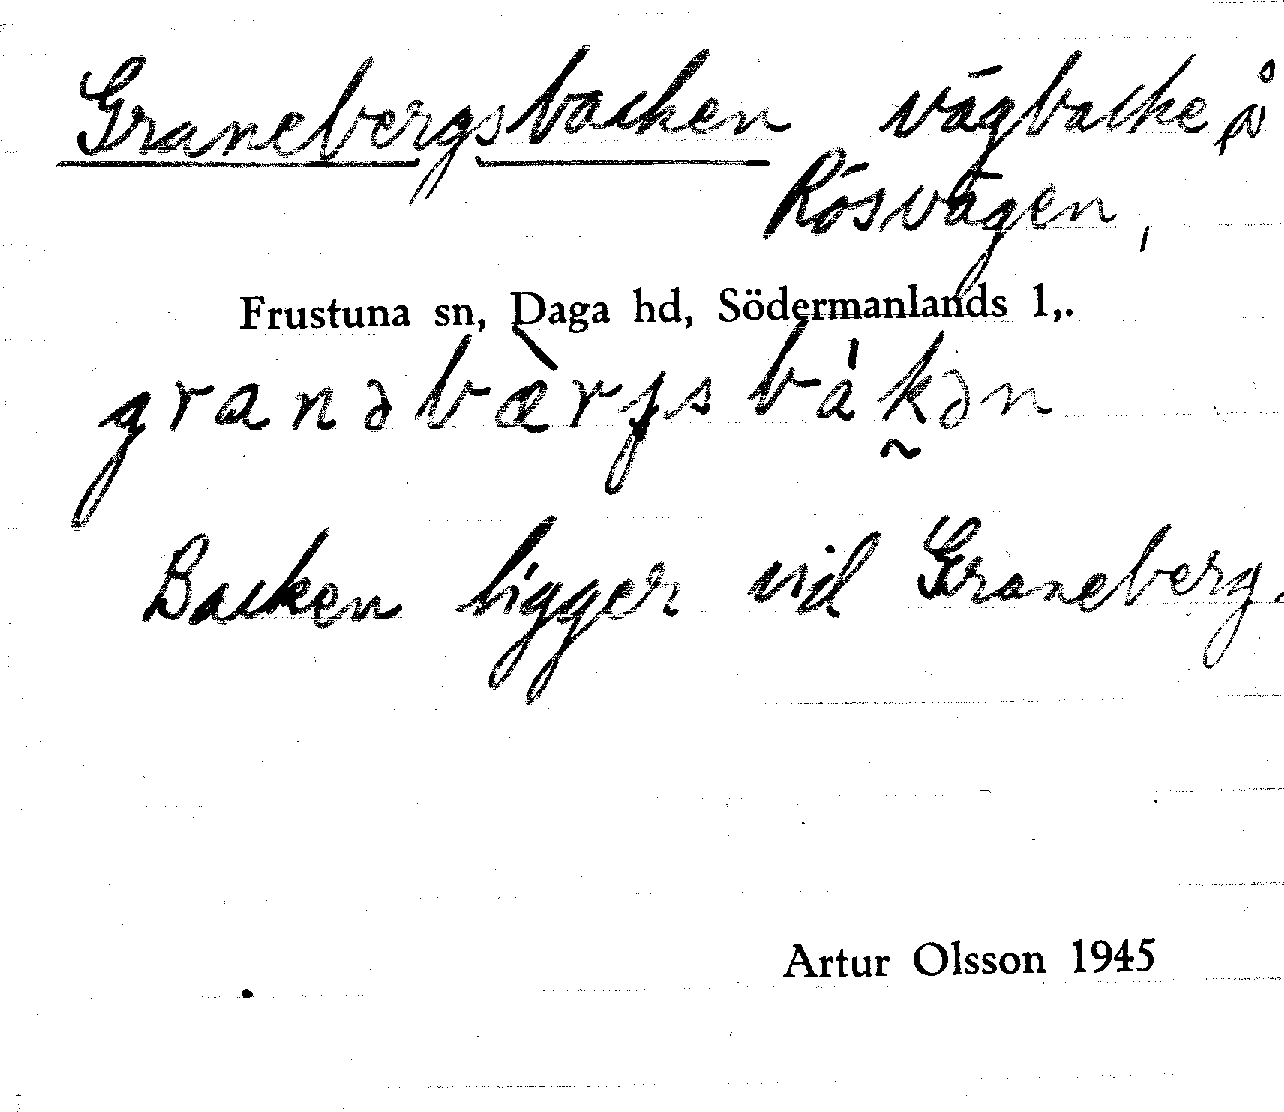 Granebergsbacken vägbacke på
Rösvägen,
Frustuna sn, Daga hd, Södermanlands l,.
granəbæ̀rjsbákən
Backen ligger vid Graneberg.
Artur Olsson 1945